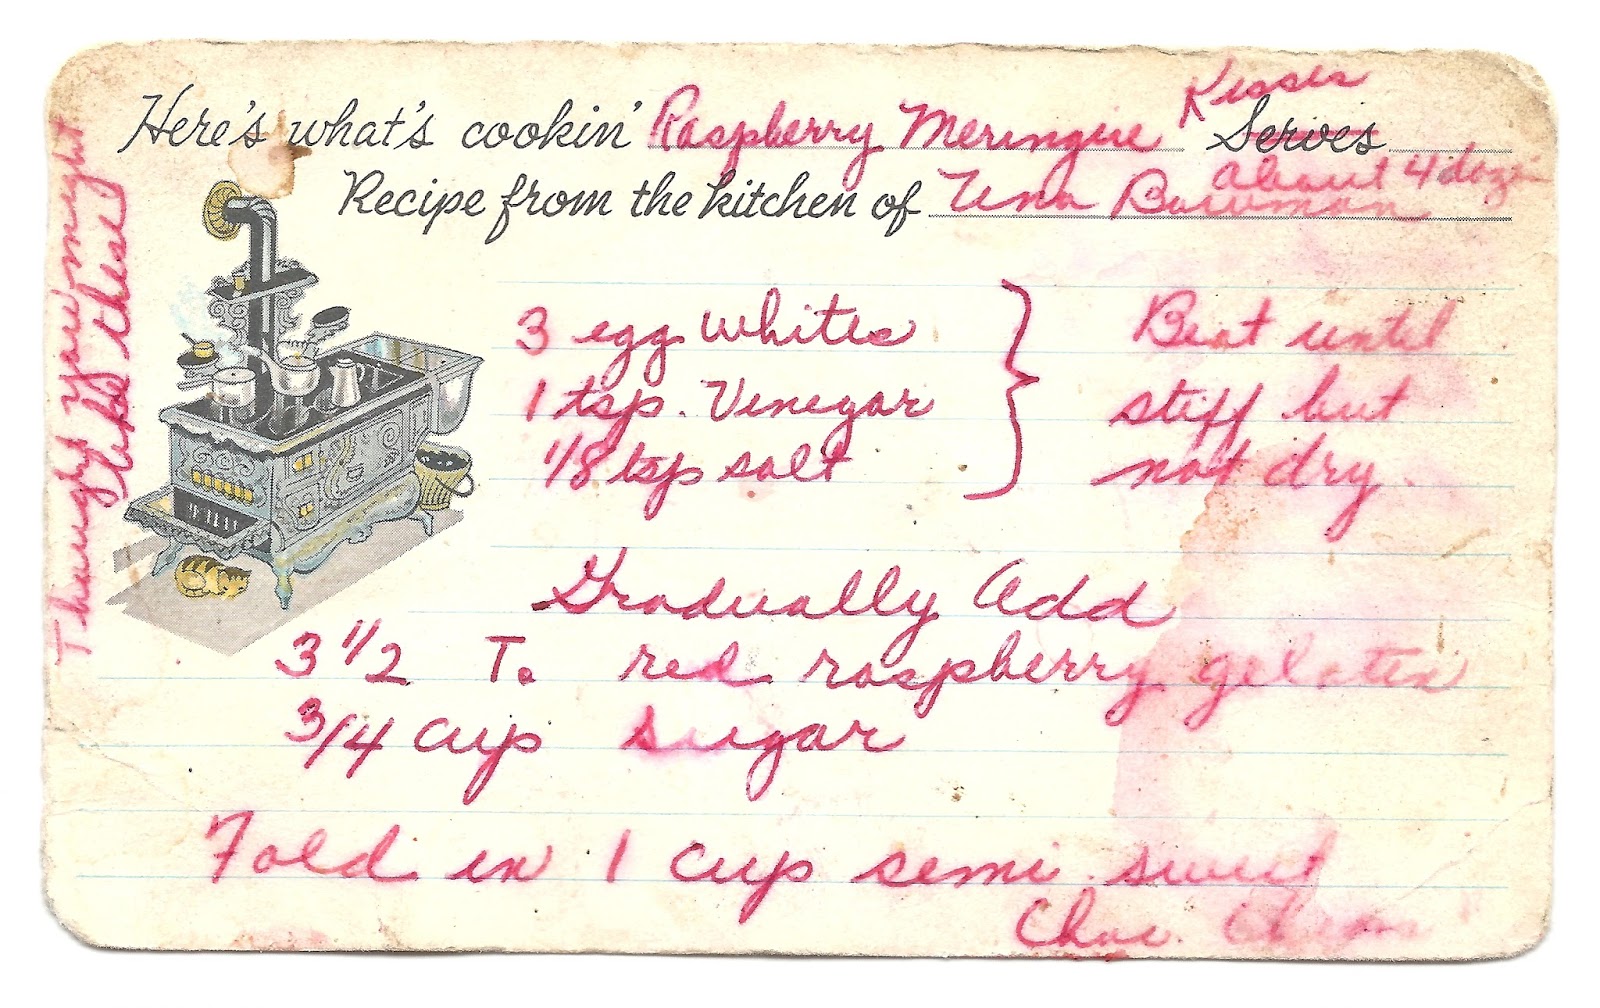 Here's what's cookin' Raspberry Meringue Kisses Serves
about 4 dozen
Recipe from the kitchen of Una Bowman
Thought you might
like these
3 egg whites
1 tsp. Vinegar
1/8 tsp salt
Beat until
stiff but
not dry.
Gradually add
3 1/2 T. red raspberry gelatin
3/4 cup sugar
Fold in 1 cup semi sweet
Choc.